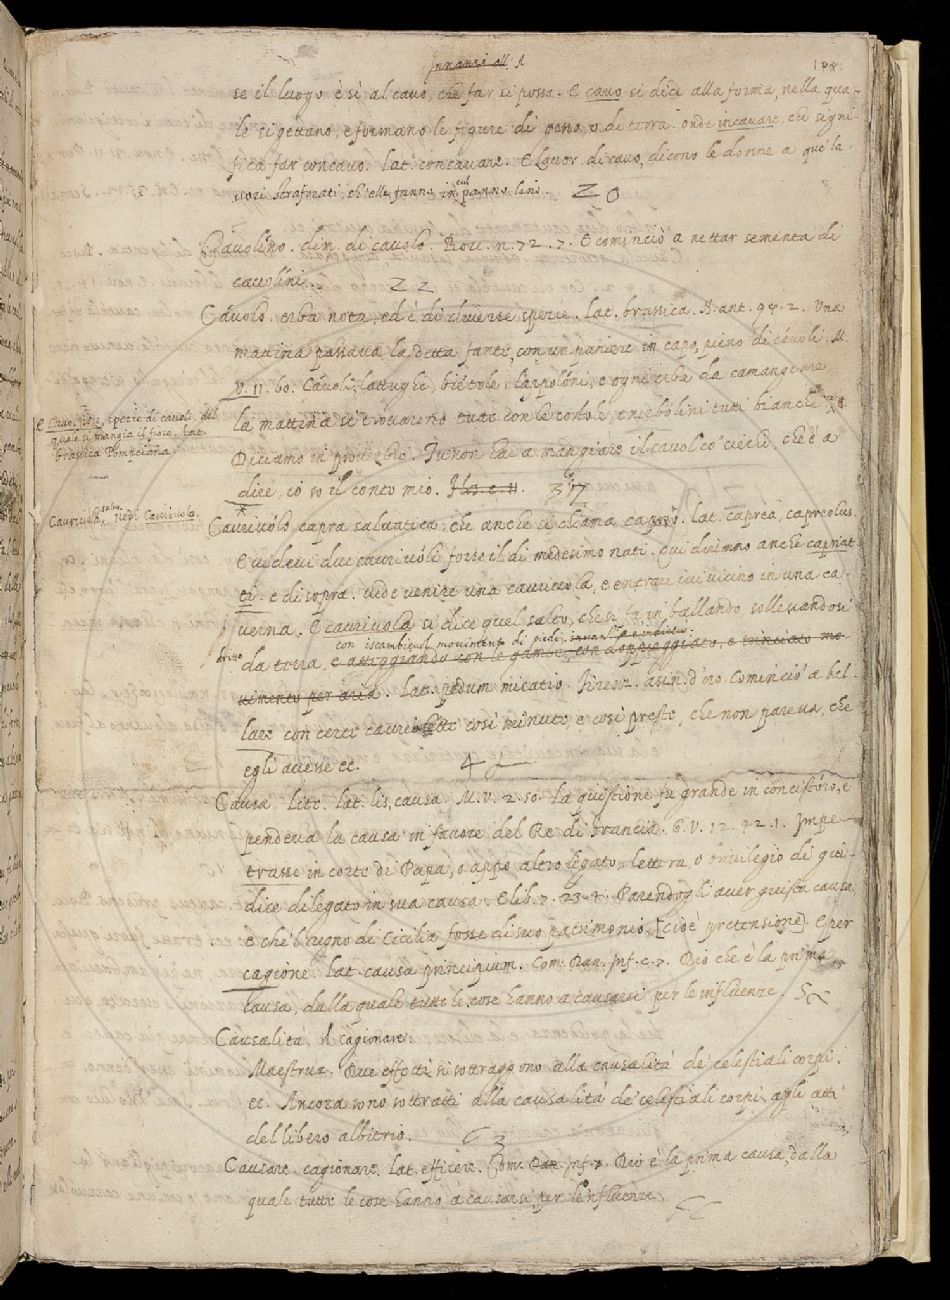 Innanzi all' A
188.
se il luogo è sì al cavo, che far si possa. E cavo si dice alla forma, nella qua-
le si gettano, e formano le figure di gesso, o di terra. onde incavare, che signi-
fica far concavo. Lat. concavare. E Lavor di cavo, dicono le donne a que' la-
vori straforati, ch'elle fanno in su panno lino. 20
Cavolíno. dim. di cavolo. Bocc. n. 72. 7. E cominciò a nettar sementa di
cavolini. 22
Cávolo. erba nota, ed è di diverse spezie. Lat. brassica. N. ant. 98. 2. Una
mattina passava la detta fante, con un paniere in capo, pieno di cávoli. M.
V. 11. 60. Cávoli, lattughe, biétole, lappolóni, e ogni erba da camangiare,
la mattina si trovarono tutte con le costole, e nerbolini tutti bianchi
Diciamo in proverbio. Tu non hai a mangiare il cavol co' ciechi, che è a
dire, io so il conto mio. 37
e Cavol fiore, spezie di cavolo, del
quale si mangia il fiore. Lat.
brassica Pompeiana
Cauriuola, salto. vedi Cauriuolo.
Cauriuólo capra salvatica, che anche si chiama Lat. caprea, capreolus.
E videvi due cauriuóli forse il dì medesimo nati. qui diremmo anche capriat-
ti. e di sopra. vide venire una cauriuola, e entrare ivi vicino in una ca-
verna. E cauriuola si dice quel salto, che si fa in ballando sollevandosi
dritto da terra, con iscambievol movimento di piedi, innanzi e indietro.
e atteggiando con le gambe, con doppieggiato, e trinciato mo-
vimento per aria. Lat. pedum micatio. Firenz. asin. d'oro Cominciò a bal-
lare con certe cauriolette così minute, e così preste, che non pareva, che
egli avesse ec. 4
Causa. Lite. Lat. lis, causa. M. V. 2. 50. La quistione fu grande in concistóro, e
pendeva la causa in favore del Re di Francia. G. V. 12. 42. 1. Impe-
trasse in corte di Papa, o appo altro legato, lettera o privilegio di giu-
dice dilegato in sua causa. E lib. 7. 23. 4. Parendogli aver giusta causa,
e che 'l regno di Cicilia fosse di suo patrimonio [cioè pretensione]. E per
cagione Lat. causa principium. Com. Dan. Inf. c. 7. Dio che è la prima
causa, dalla quale tutte le cose hanno a causarsi per le influenze.
Causalitá. il cagionare.
Maestruz. Due effetti si sottraggono alla causalità de' celestiali corpi.
ec. Ancora sono sottratti alla causalità de' celestiali corpi, agli atti
del libero albitrio. 63
Causare. cagionare, Lat. efficere. Com. Dan. Inf. 7. Dio è la prima causa, dalla
quale tutte le cose hanno a causarsi per le 'nfluenze.